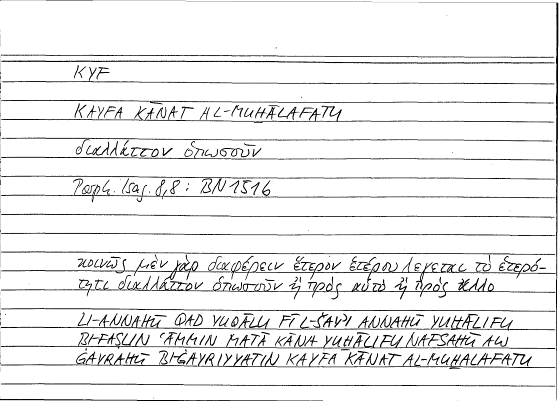 KYF
KAYFA KĀNAT AL-MUḪĀLAFATU
διαλλάττον ὁπωσοῦν
Porph. Isag. 8,8 : BN 1516
κοινῶς μὲν γὰρ διαφέρειν ἕτερον ἑτέρου λέγεται τὸ ἑτερό-
τητι διαλλάττον ὁπωσοῦν ἢ πρὸς αὑτὸ ἢ πρὸς ἄλλο
LI-ANNAHŪ QAD YUQĀLU FĪ L-ŠAYʾI ANNAHŪ YUḪĀLIFU
BI-FAṢLIN ʿĀMMIN MATĀ KĀNA YUḪĀLIFU NAFSAHŪ AW
ĠAYRAHŪ BI-ĠAYRIYYATIN KAYFA KĀNAT AL-MUḪALAFATU